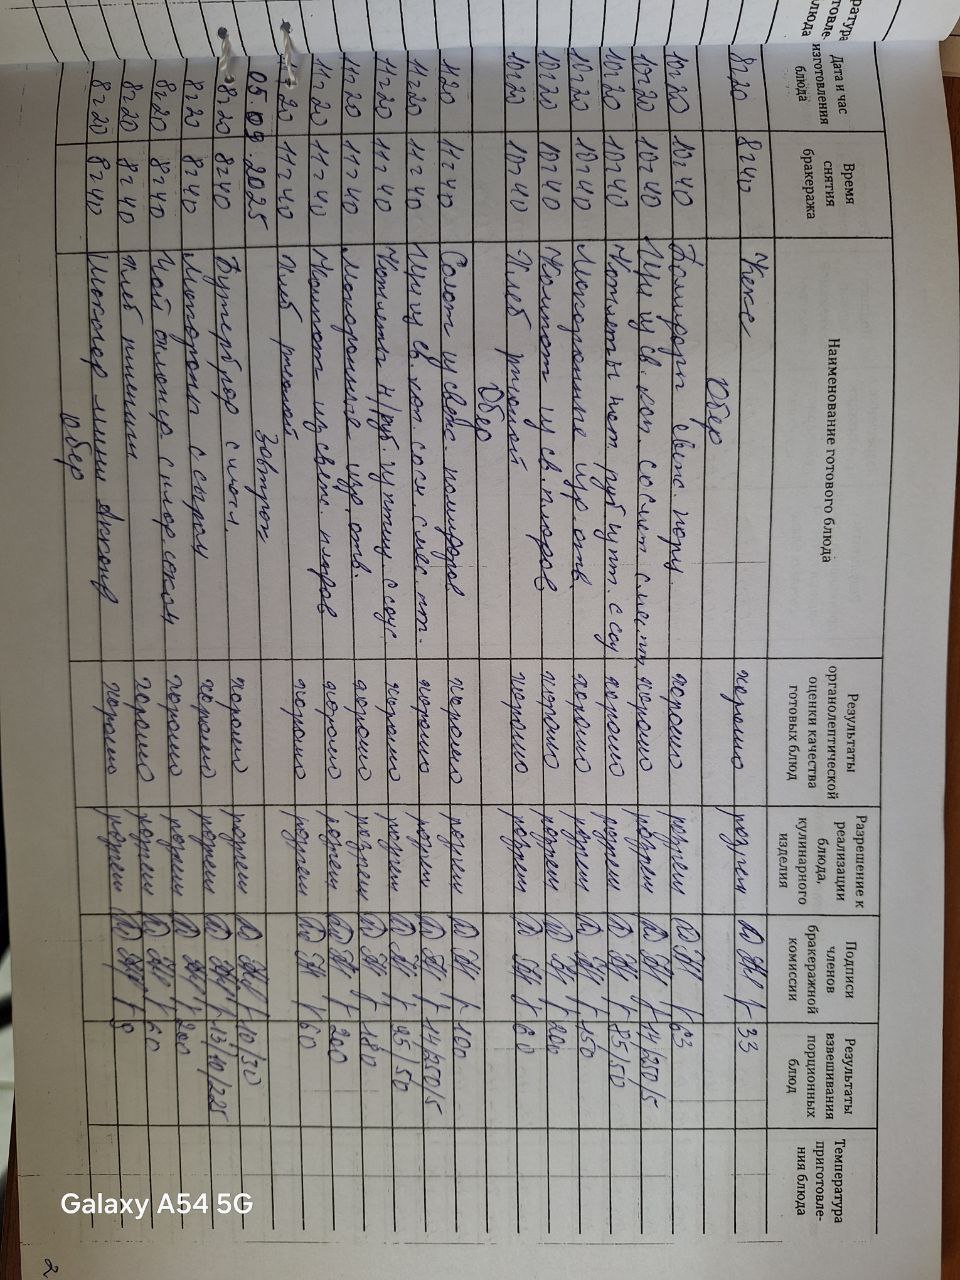 Дата и час изготовления блюда | Время снятия бракеража | Наименование готового блюда | Результаты органолептической оценки качества готовых блюд | Разрешение к реализации блюда, кулинарного изделия | Подписи членов бракеражной комиссии | Результаты взвешивания порционных блюд | Температура приготовле-ния блюда
8г20 8г40 Кекс хорошо разреш 33
Обед
10г20 10г40 Помидоры свеж. хорошо разреш 63
10г20 10г40 Щи из св. кап. со смет. хорошо разреш 14/250/5
10г20 10г40 Котлеты хорошо разреш 85/50
10г20 10г40 Макаронные изд. отв. хорошо разреш 150
10г20 10г40 Компот из св. плодов хорошо разреш 200
10г20 10г40 Хлеб ржаной хорошо разреш 60
Обед
11г20 11г40 Салат из свеж. помидоров хорошо разреш 100
11г20 11г40 Щи из св. кап. со см. хорошо разреш 14/250/5
11г20 11г40 Котлеты н/руб. птицы с соус. хорошо разреш 95/50
11г20 11г40 Макаронные изд. отв. хорошо разреш 180
11г20 11г40 Компот из свеж. плодов хорошо разреш 200
20 11г40 Хлеб ржаной хорошо разреш 60
05.09.2025 Завтрак
8г20 8г40 Бутерброд с масл. хорошо разреш 10/30
8г20 8г40 Макароны с сыром хорошо разреш 13/10/225
8г20 8г40 Чай с сахаром хорошо разреш 200
8г20 8г40 Хлеб пшенич хорошо разреш 60
8г20 8г40 Шоколад мини хорошо разреш 9
Обед
Galaxy A54 5G
2